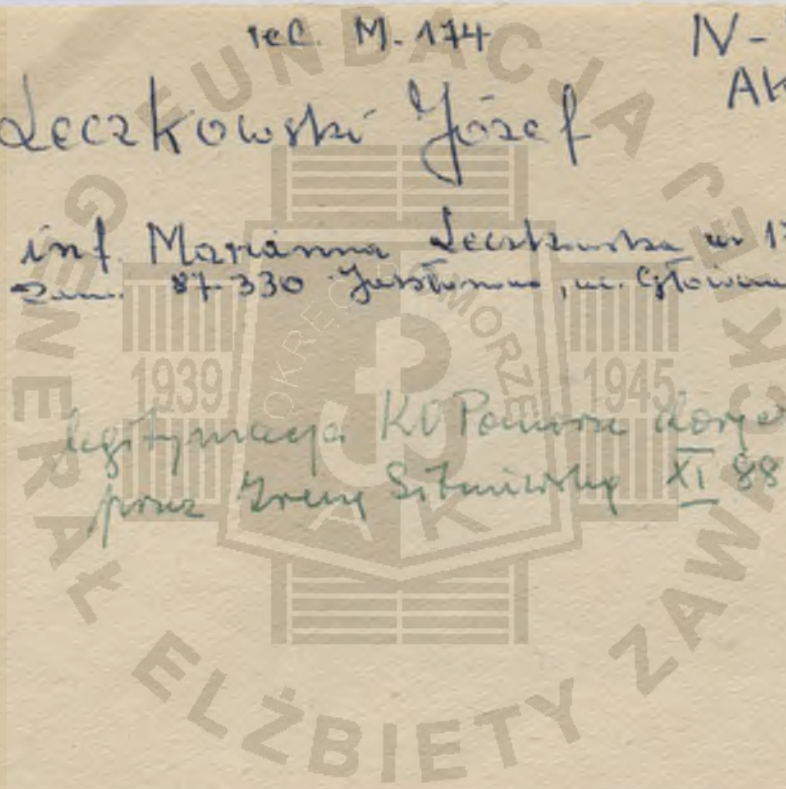 rel. M-174 IV-
AK
Leczkowski Józef
inf. Marianna Leczkowska ur 17
zam. 87-330 Jabłonowo, ul. Główna
legitymacja KO Pomorze
przez Irenę XI 88
FUNDACJA GENERAŁ ELŻBIETY ZAWACKIEJ
OKRĘG POMORZE
1939 1945
AK